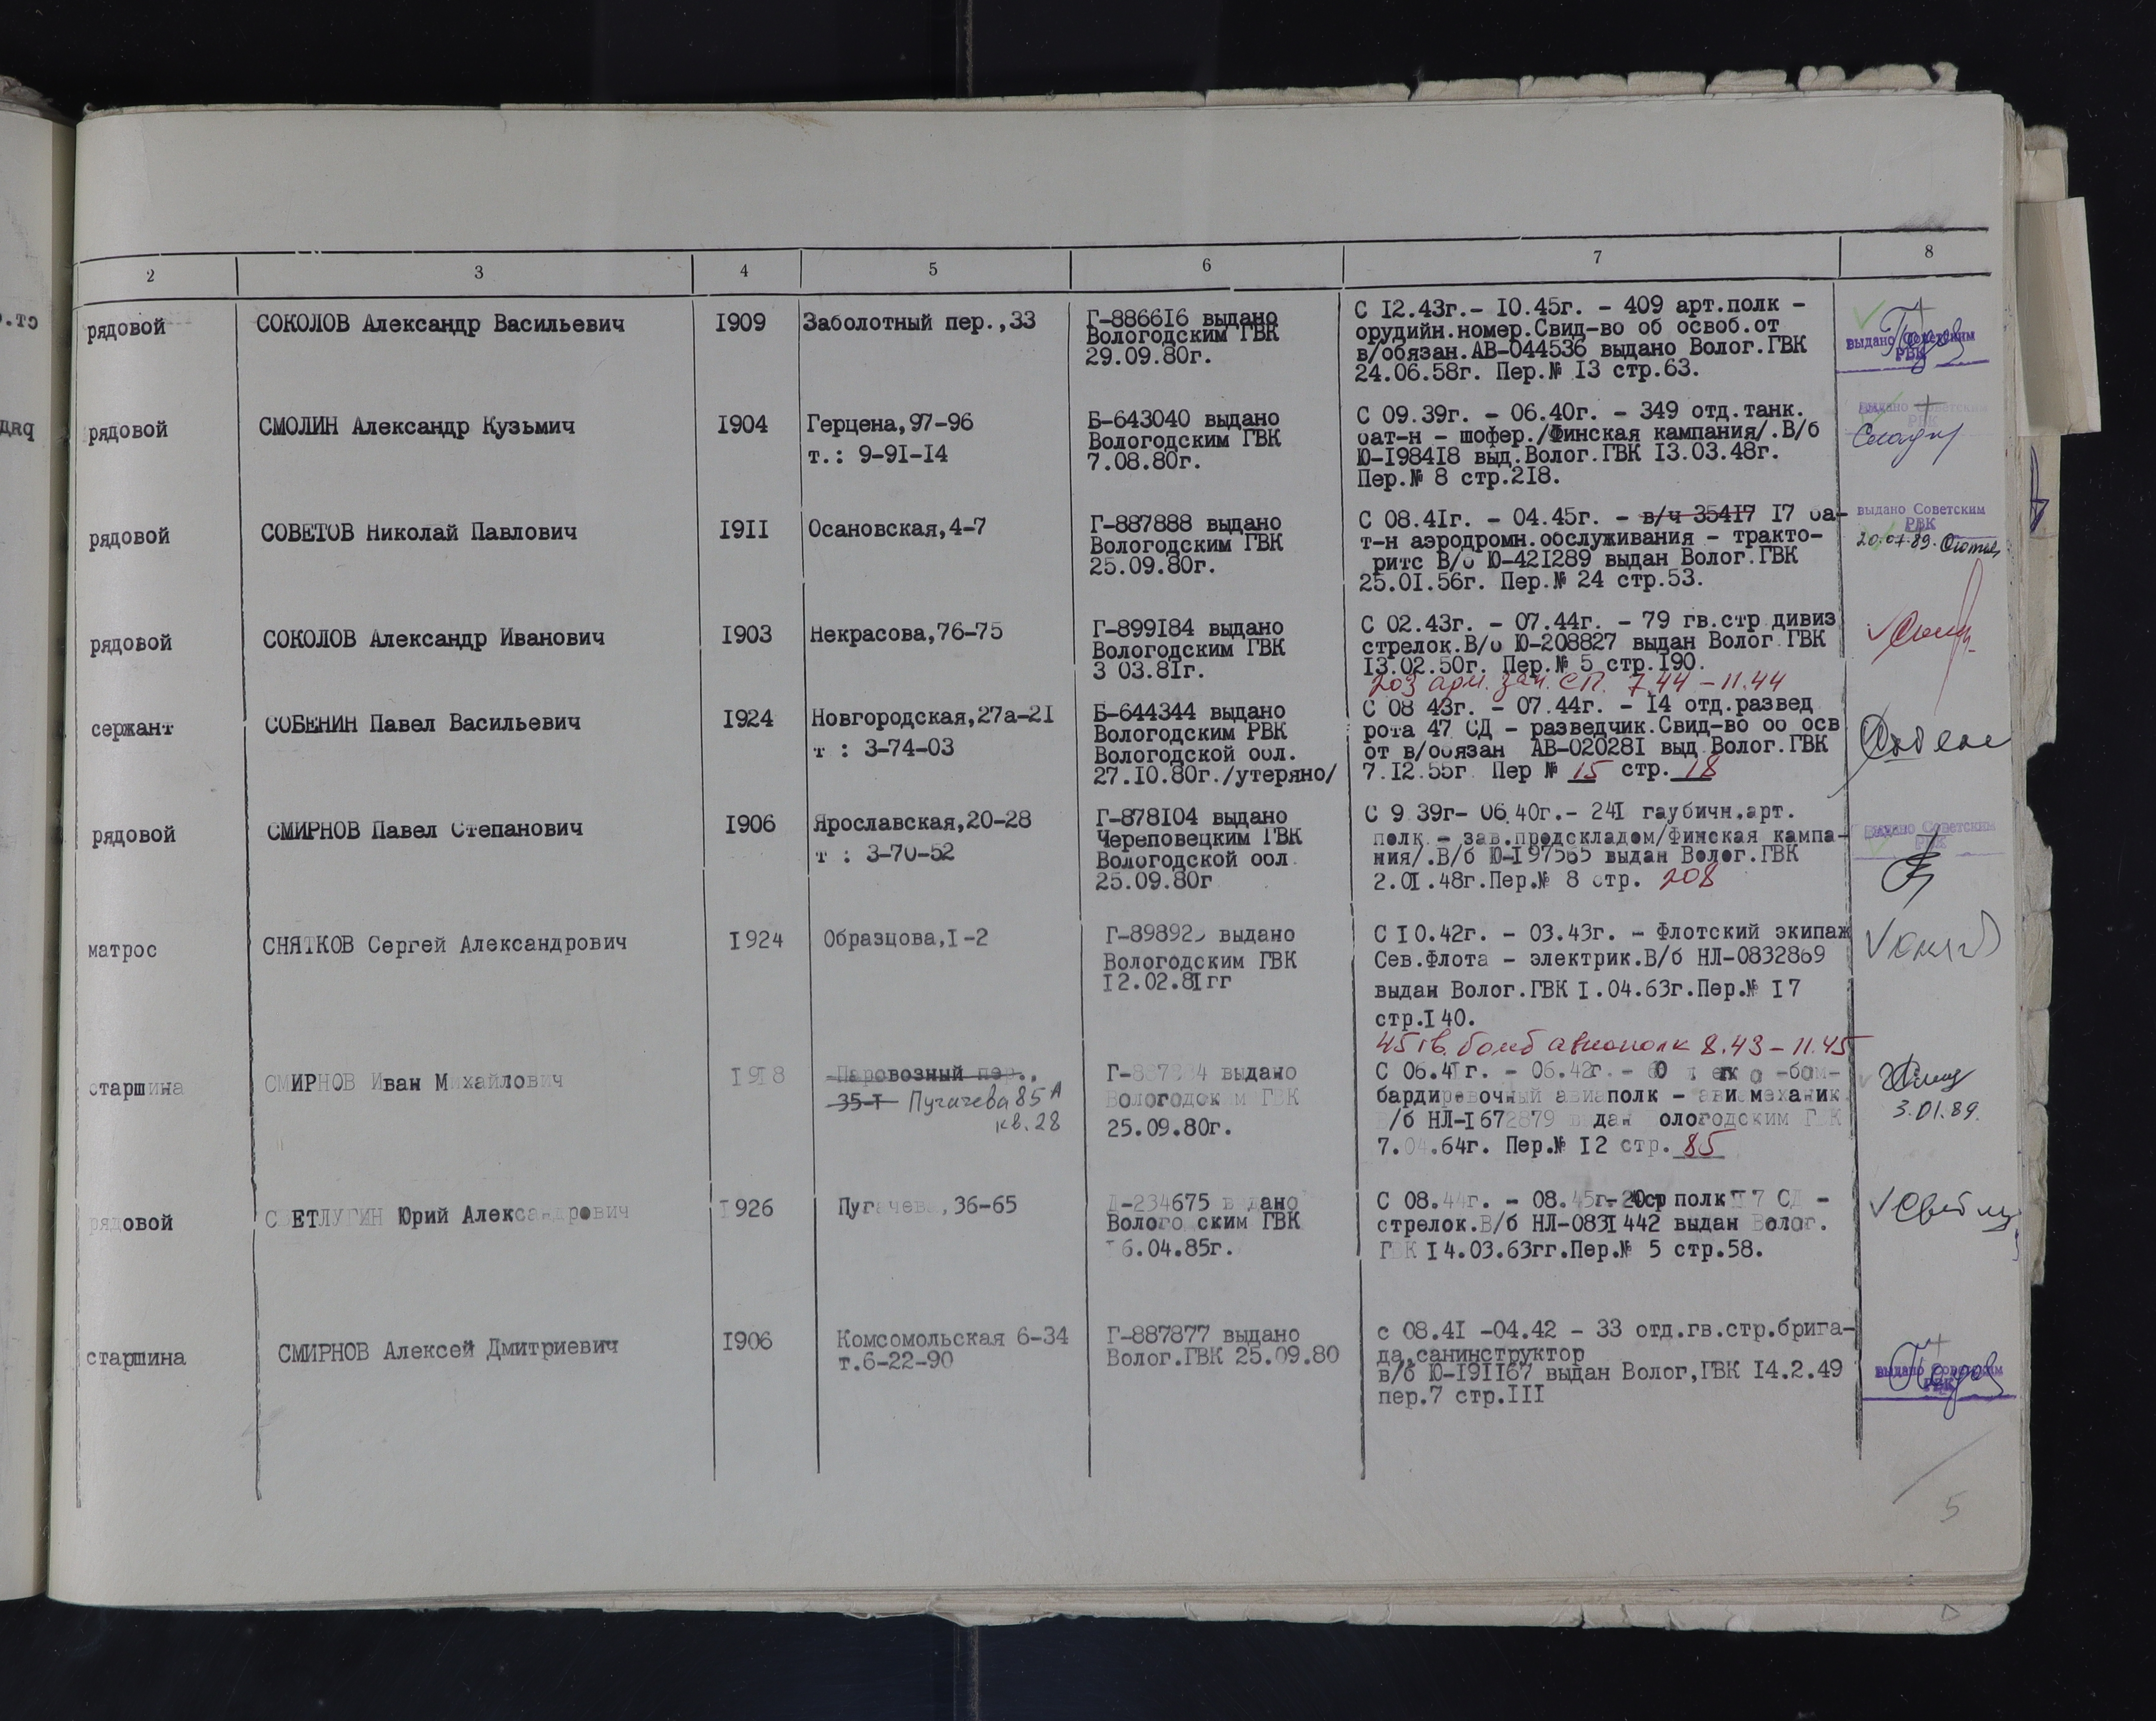 2 3 4 5 6 7 8
рядовой
СОКОЛОВ Александр Васильевич
1909
Заболотный пер.,33
Г-886616 выдано
Вологодским ГВК
29.09.80г.
С 12.43г.- 10.45г. - 409 арт.полк -
орудийн.номер.Свид-во об освоб.от
в/обязан.АВ-044536 выдано Волог.ГВК
24.06.58г. Пер.№ 13 стр.63.
выдано Советским
РВК
рядовой
СМОЛИН Александр Кузьмич
1904
Герцена,97-96
т.: 9-91-14
Б-643040 выдано
Вологодским ГВК
7.08.80г.
С 09.39г. - 06.40г. - 349 отд.танк.
бат-н - шофер./Финская кампания/.В/б
Ю-198418 выд.Волог.ГВК 13.03.48г.
Пер.№ 8 стр.218.
выдано Советским
РВК
рядовой
СОВЕТОВ Николай Павлович
1911
Осановская,4-7
Г-887888 выдано
Вологодским ГВК
25.09.80г.
С 08.41г. - 04.45г. - в/ч 35417 17 ба-
т-н аэродромн.обслуживания - тракто-
ритс В/б Ю-421289 выдан Волог.ГВК
25.01.56г. Пер.№ 24 стр.53.
выдано Советским
РВК
рядовой
СОКОЛОВ Александр Иванович
1903
Некрасова,76-75
Г-899184 выдано
Вологодским ГВК
3 03.81г.
С 02.43г. - 07.44г. - 79 гв.стр дивиз
стрелок.В/б Ю-208827 выдан Волог.ГВК
13.02.50г. Пер.№ 5 стр.190.
203 арм. зап. СП. 7.44 - 11.44
сержант
СОБЕНИН Павел Васильевич
1924
Новгородская,27а-21
т : 3-74-03
Б-644344 выдано
Вологодским РВК
Вологодской обл.
27.10.80г./утеряно/
С 08 43г. - 07.44г. - 14 отд.развед
рота 47 СД - разведчик.Свид-во об осв
от в/обязан АВ-020281 выд.Волог.ГВК
7.12.55г. Пер № 15 стр. 18
рядовой
СМИРНОВ Павел Степанович
1906
Ярославская,20-28
т : 3-70-52
Г-878104 выдано
Череповецким ГВК
Вологодской обл.
25.09.80г
С 9 39г- 06.40г.- 241 гаубичн.арт.
полк - зав.продскладом/Финская кампа-
ния/.В/б Ю-197565 выдан Волог.ГВК
2.01.48г.Пер.№ 8 стр. 208
выдано Советским
РВК
матрос
СНЯТКОВ Сергей Александрович
1924
Образцова,1-2
выдано
Вологодским ГВК
12.02.81гг
С 10.42г. - 03.43г. - Флотский экипаж
Сев.Флота - электрик.В/б НЛ-0832869
выдан Волог.ГВК 1.04.63г.Пер.№ 17
стр.140.
45 гв. бомб авиаполк 8.43 - 11.45
старшина
СМИРНОВ Иван Михайлович
1918
Паровозный пер.,
35-1 Пугачева 85А
кв.28
выдано
Вологодским ГВК
25.09.80г.
С 06.41г. - 06.42г. - -бом-
бардировочный авиаполк - авиамеханик
В/б НЛ-1672879 выдан Вологодским ГВК
7.04.64г. Пер.№ 12 стр. 85
3.01.89.
рядовой
СВЕТЛУГИН Юрий Александрович
1926
Пугачева,36-65
-234675 выдано
Вологодским ГВК
6.04.85г.
С 08.44г. - 08.45г- полк СД -
стрелок.В/б НЛ-0831442 выдан Волог.
ГВК 14.03.63гг.Пер.№ 5 стр.58.
старшина
СМИРНОВ Алексей Дмитриевич
1906
Комсомольская 6-34
т.6-22-90
Г-887877 выдано
Волог.ГВК 25.09.80
с 08.41 -04.42 - 33 отд.гв.стр.брига-
да,санинструктор
в/б Ю-191167 выдан Волог,ГВК 14.2.49
пер.7 стр.111
выдано Советским
РВК
5